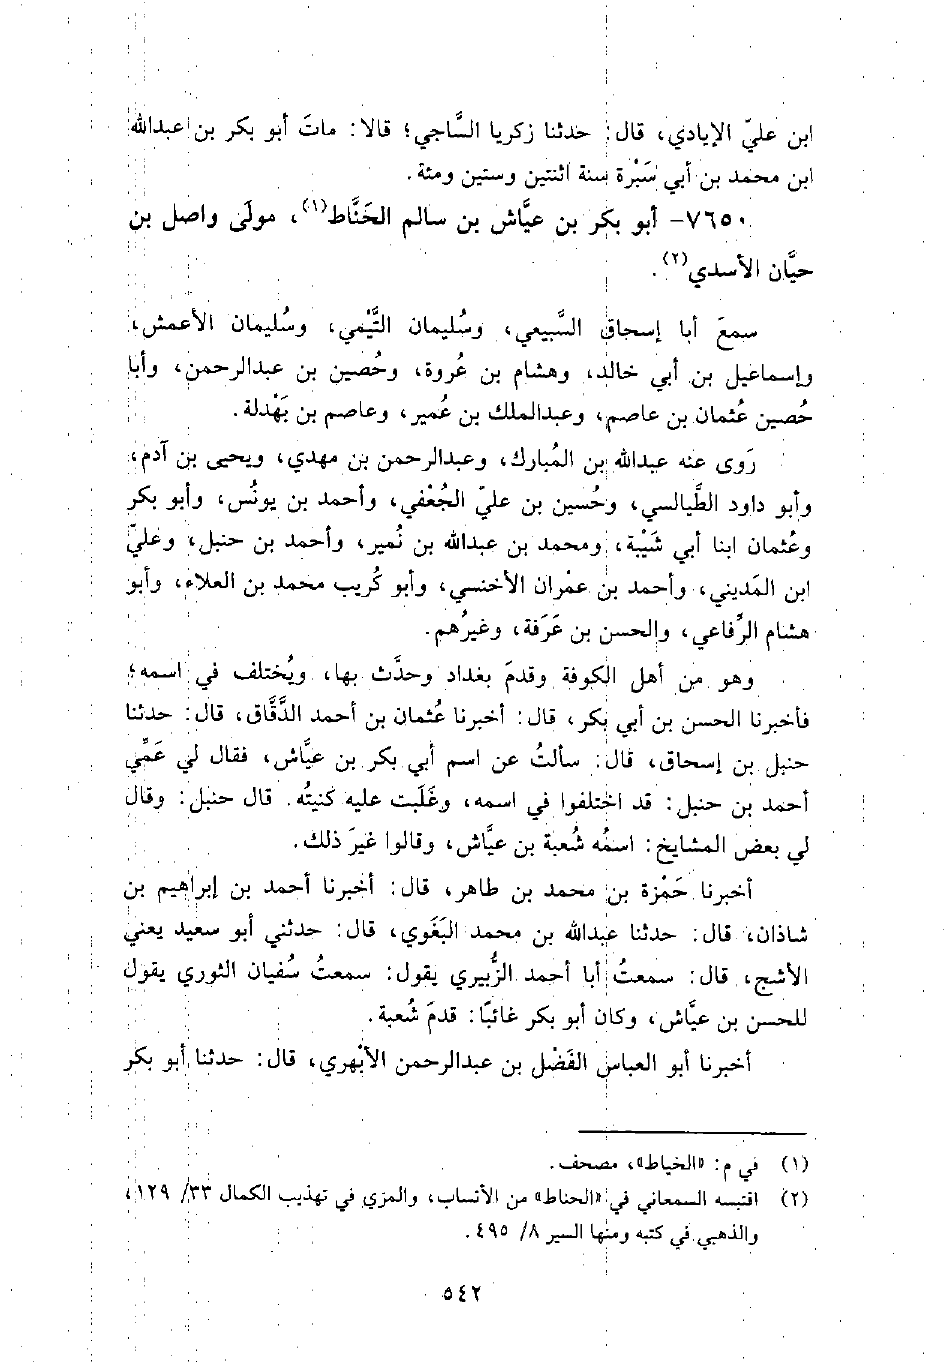 ابن عليّ الإيادي، قال: حدثنا زكريا السَّاجي؛ قالا: ماتَ أبو بكر بن عبدالله
ابن محمد بن أبي سَبْرة سنة اثنتين وستين ومئة.
٧٦٥٠- أبو بكر بن عيَّاش بن سالم الحَنَّاط(١)، مولَى واصل بن
حيَّان الأسدي(٢).
سمعَ أبا إسحاق السَّبيعي، وسُليمان التَّيْمي، وسُليمان الأعمش،
وإسماعيل بن أبي خالد، وهشام بن عُروة، وحُصين بن عبدالرحمن، وأبا
حُصين عُثمان بن عاصم، وعبدالملك بن عُمير، وعاصم بن بَهْدلة.
رَوى عنه عبدالله بن المُبارك، وعبدالرحمن بن مهدي، ويحيى بن آدم،
وأبو داود الطَّيالسي، وحُسين بن عليّ الجُعْفي، وأحمد بن يونُس، وأبو بكر
وعُثمان ابنا أبي شَيْبة، ومحمد بن عبدالله بن نُمير، وأحمد بن حنبل، وعليّ
ابن المَديني، وأحمد بن عمْران الأخنسي، وأبو كُريب محمد بن العلاء، وأبو
هشام الرِّفاعي، والحسن بن عَرَفة، وغيرُهم.
وهو من أهل الكوفة وقدمَ بغداد وحدَّث بها، ويُختلف في اسمه؛
فأخبرنا الحسن بن أبي بكر، قال: أخبرنا عُثمان بن أحمد الدَّقَّاق، قال: حدثنا
حنبل بن إسحاق، قال: سألتُ عن اسم أبي بكر بن عيَّاش، فقال لي عَمِّي
أحمد بن حنبل: قد اختلفوا في اسمه، وغَلَبت عليه كنيتُه. قال حنبل: وقال
لي بعض المشايخ: اسمُه شُعبة بن عيَّاش، وقالوا غيرَ ذلك.
أخبرنا حَمْزة بن محمد بن طاهر، قال: أخبرنا أحمد بن إبراهيم بن
شاذان، قال: حدثنا عبدالله بن محمد البَغَوي، قال: حدثني أبو سعيد يعني
الأشج، قال: سمعتُ أبا أحمد الزُّبيري يقول: سمعتُ سُفيان الثوري يقول
للحسن بن عيَّاش، وكان أبو بكر غائبًا: قدمَ شُعبة.
أخبرنا أبو العباس الفَضْل بن عبدالرحمن الأبْهري، قال: حدثنا أبو بكر
(١) في م: «الخياط»، مصحف.
(٢) اقتبسه السمعاني في «الحناط» من الأنساب، والمزي في تهذيب الكمال ٣٣/ ١٢٩،
والذهبي في كتبه ومنها السير ٨/ ٤٩٥.
٥٤٢